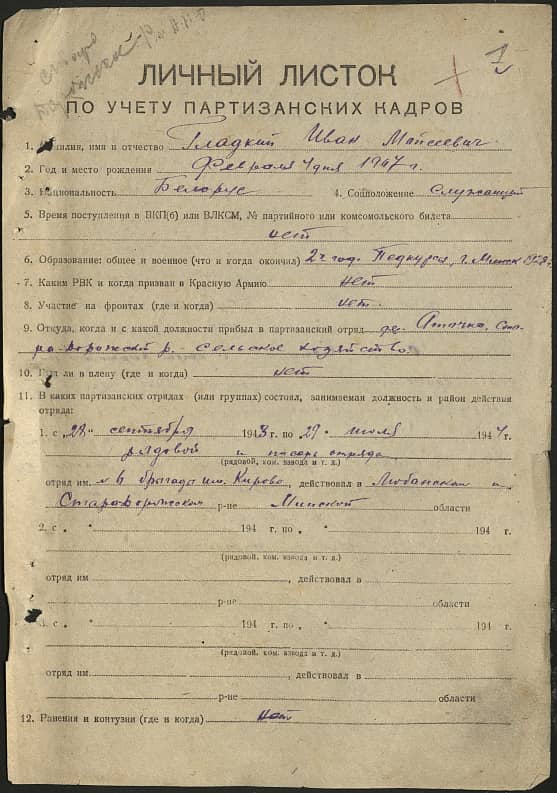 1
ЛИЧНЫЙ ЛИСТОК
ПО УЧЕТУ ПАРТИЗАНСКИХ КАДРОВ
1. милия, имя и отчество Гладкий Иван Моисеевич
2. Год и место рождения Февраля 4 дня 1907 г.
3. Национальность Белорус 4. Соцположение Служащий
5. Время поступления в ВКП(б) или ВЛКСМ, № партийного или комсомольского билета
нет
6. Образование: общее и военное (что и когда окончил) 2х год. Педкурсы, г. Минск
7. Каким РВК и когда призван в Красную Армию нет
8. Участие на фронтах (где и когда) нет.
9. Откуда, когда и с какой должности прибыл в партизанский отряд дер. Ста-
ро-Дорожский р. - сельское хозяйство.
10. Был ли в плену (где и когда) нет
11. В каких партизанских отрядах (или группах) состоял, занимаемая должность и район действия
отряда:
1. с „28" сентября 1943 г. по 29 " июля 1944 г.
рядовой и писарь отряда
(рядовой, ком. взвода и т. д.)
отряд им. бригады им. Кирова, действовал в Любанском и
Стародорожском р-не Минской области
2. с „ " 194 г. по „ " 194 г.
(рядовой, ком. взвода и т. д.)
отряд им , действовал в
р-не области
3. с „ " 194 г. по „ " 194 г.
(рядовой, ком. взвода и т. д.)
отряд им. , действовал в
р-не области
12. Ранения и контузии (где и когда) нет